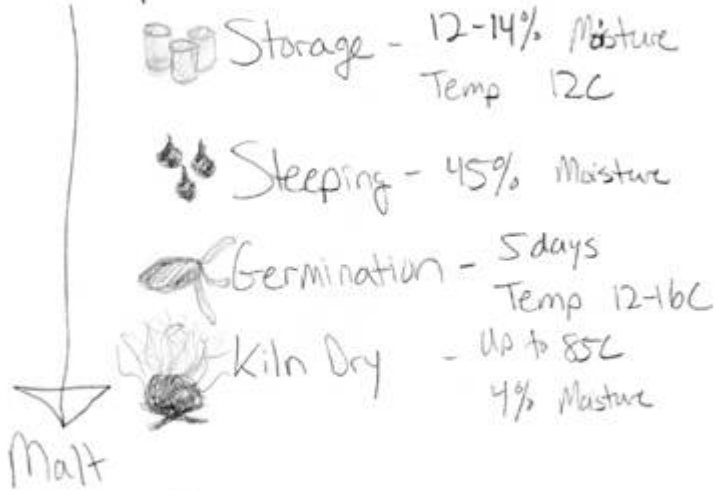 Storage - 12-14% Moisture
Temp 12C
Steeping - 45% Moisture
Germination - 5 days
Temp 12-16C
Kiln Dry - Up to 85C
4% Moisture
Malt